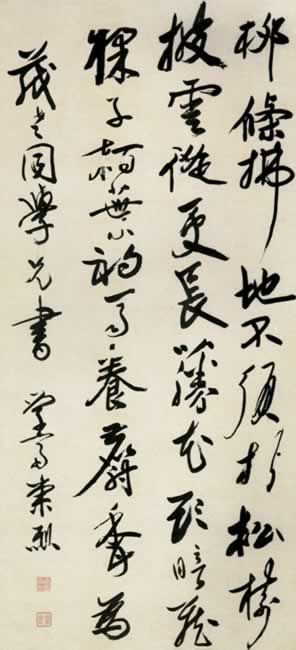 柳條拂地不須折松樹
披雲從更長藤花欲暗藏
猱子柏葉初齊養麝香為
老同學兄書